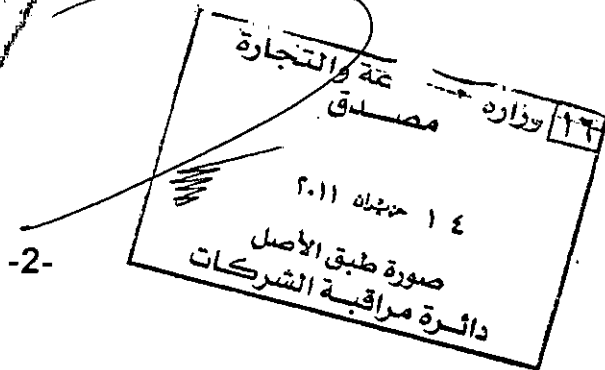 ١٦ وزارة عة والتجارة
مصدق
١٤ حزيران ٢٠١١
صورة طبق الأصل
دائرة مراقبة الشركات
-2-